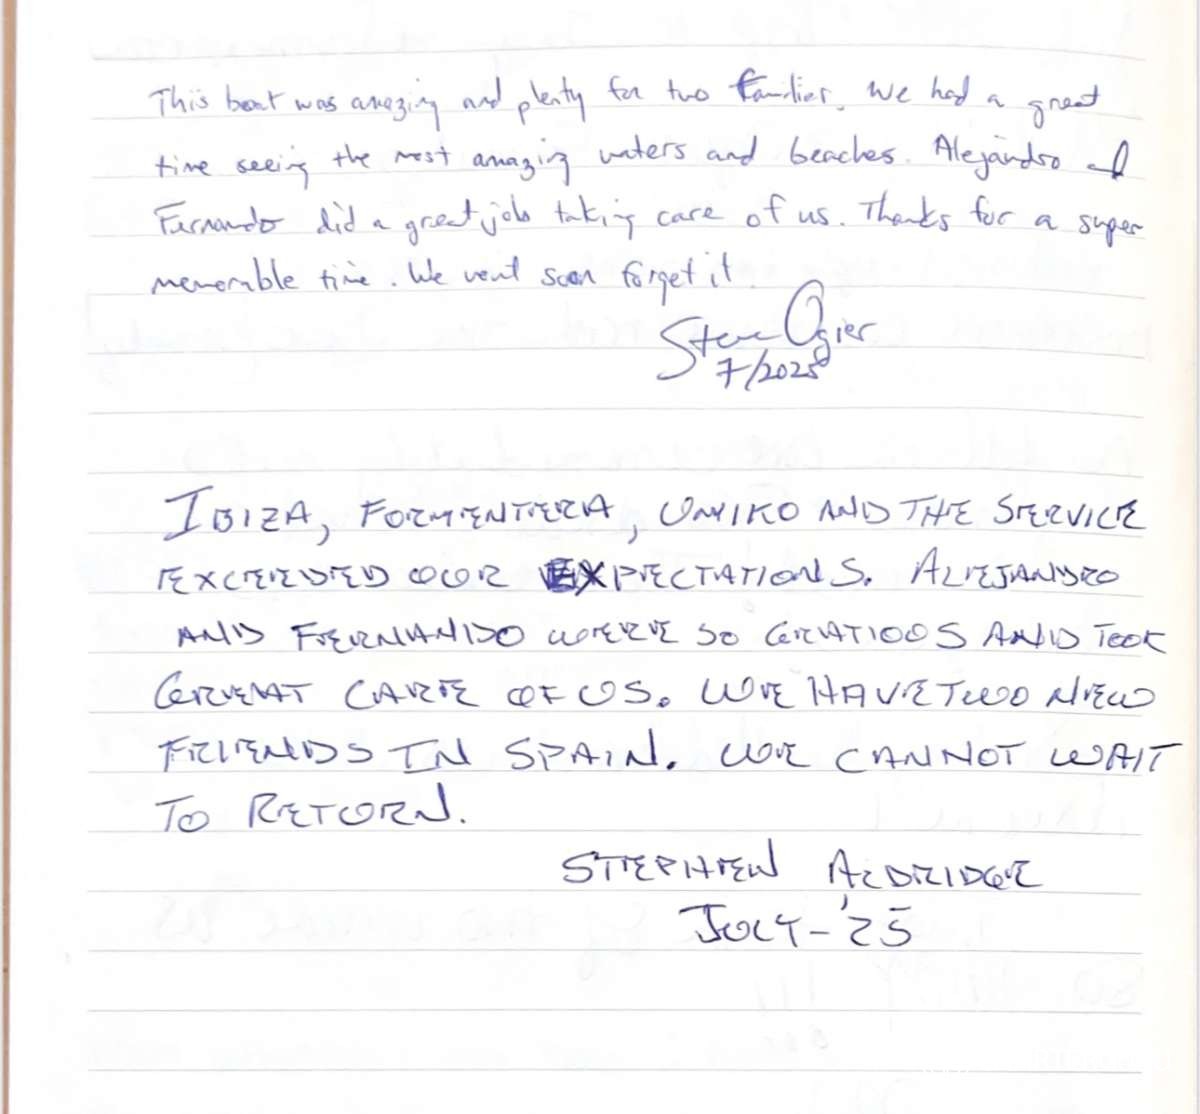 This boat was amazing and plenty for two families. We had a great
time seeing the most amazing waters and beaches. Alejandro and
Fernando did a great job taking care of us. Thanks for a super
memorable time. We wont soon forget it.
Steve Ogier
7/2025
IBIZA, FORMENTERA, UNIKO AND THE SERVICE
EXCEEDED OUR EXPECTATIONS. ALEJANDRO
AND FERNANDO WERE SO GRATIOUS AND TOOK
GREAT CARE OF US. WE HAVE TWO NEW
FRIENDS IN SPAIN. WE CANNOT WAIT
TO RETURN.
STEPHEN ALDRIDGE
JULY - '25